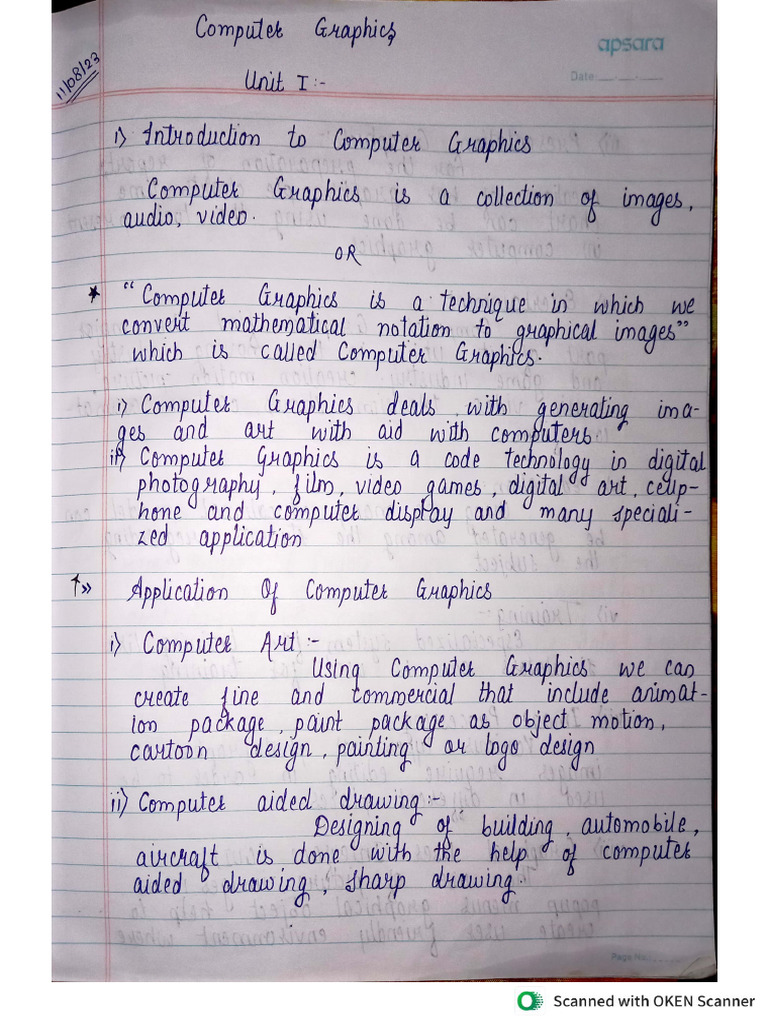 Computer Graphics
apsara
11/08/23
Date:
Unit I :-
i) Introduction to Computer Graphics
Computer Graphics is a collection of images,
audio, video.
OR
* "Computer Graphics is a technique in which we
convert mathematical notation to graphical images"
which is called Computer Graphics.
i) Computer Graphics deals with generating ima-
ges and art with aid with computers
ii) Computer Graphics is a code technology in digital
photography, film, video games, digital art, cellp-
hone and computer display and many speciali-
zed application
↑» Application Of Computer Graphics
i) Computer Art :-
Using Computer Graphics we can
create fine and commercial that include animat-
ion package, paint package as object motion,
cartoon design, painting or logo design
ii) Computer aided drawing :-
Designing of building, automobile,
aircraft is done with the help of computer
aided drawing, sharp drawing.
Page No.
Scanned with OKEN Scanner